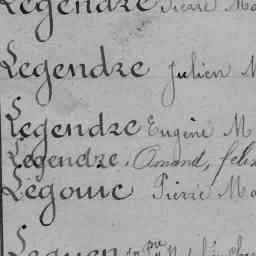 Legendre Pierre Ma
Legendre Julien M
Legendre Eugène M
Legendre, Amand, feli
Legouie Pierre Ma
Leguen